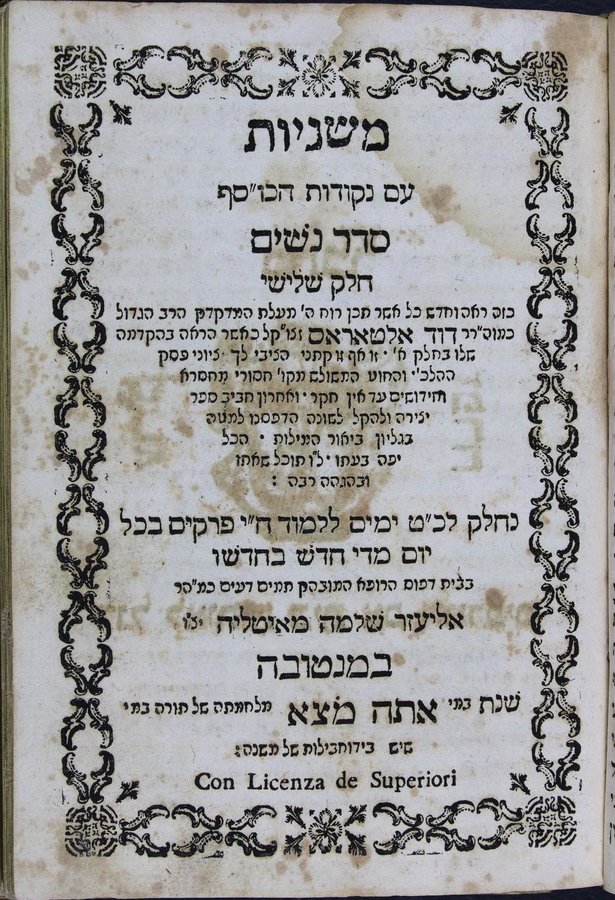 משניות
עם נקודות הכו״סף
סדר נשים
חלק שלישי
כזה ראה וחדש כל אשר תכן רוח ה׳ מעלת המדקדק הרב הגדול
כמוה״רר דוד אלטאראס זצו״קל כאשר הראה בהקדמה
שלו בחלק א׳ · זו אף זו קתני הציבי לך ציוני פסק
ההלכ׳ והחוט המשולש מקו׳ חסורי מחסרא
וחידושים עד אין חקר · ואחרון חביב ספר
יצירה ולהקל לשונה הדפסנו למטה
בגליון ביאור המילות · הכל
יפה בעתו · ל״ו תוכל שאתו
ובהגהה רבה :
נחלק לכ״ט ימים ללמוד ח״י פרקים בכל
יום מדי חדש בחדשו
בבית דפוס הרופא המובהק תמים דעים כמ״הר
אליעזר שלמה מאיטליה יצ״ו
במנטובה
שנת במי אתה מצא מלחמתה של תורה במי
שיש בידו חבילות של משנה :
Con Licenza de Superiori